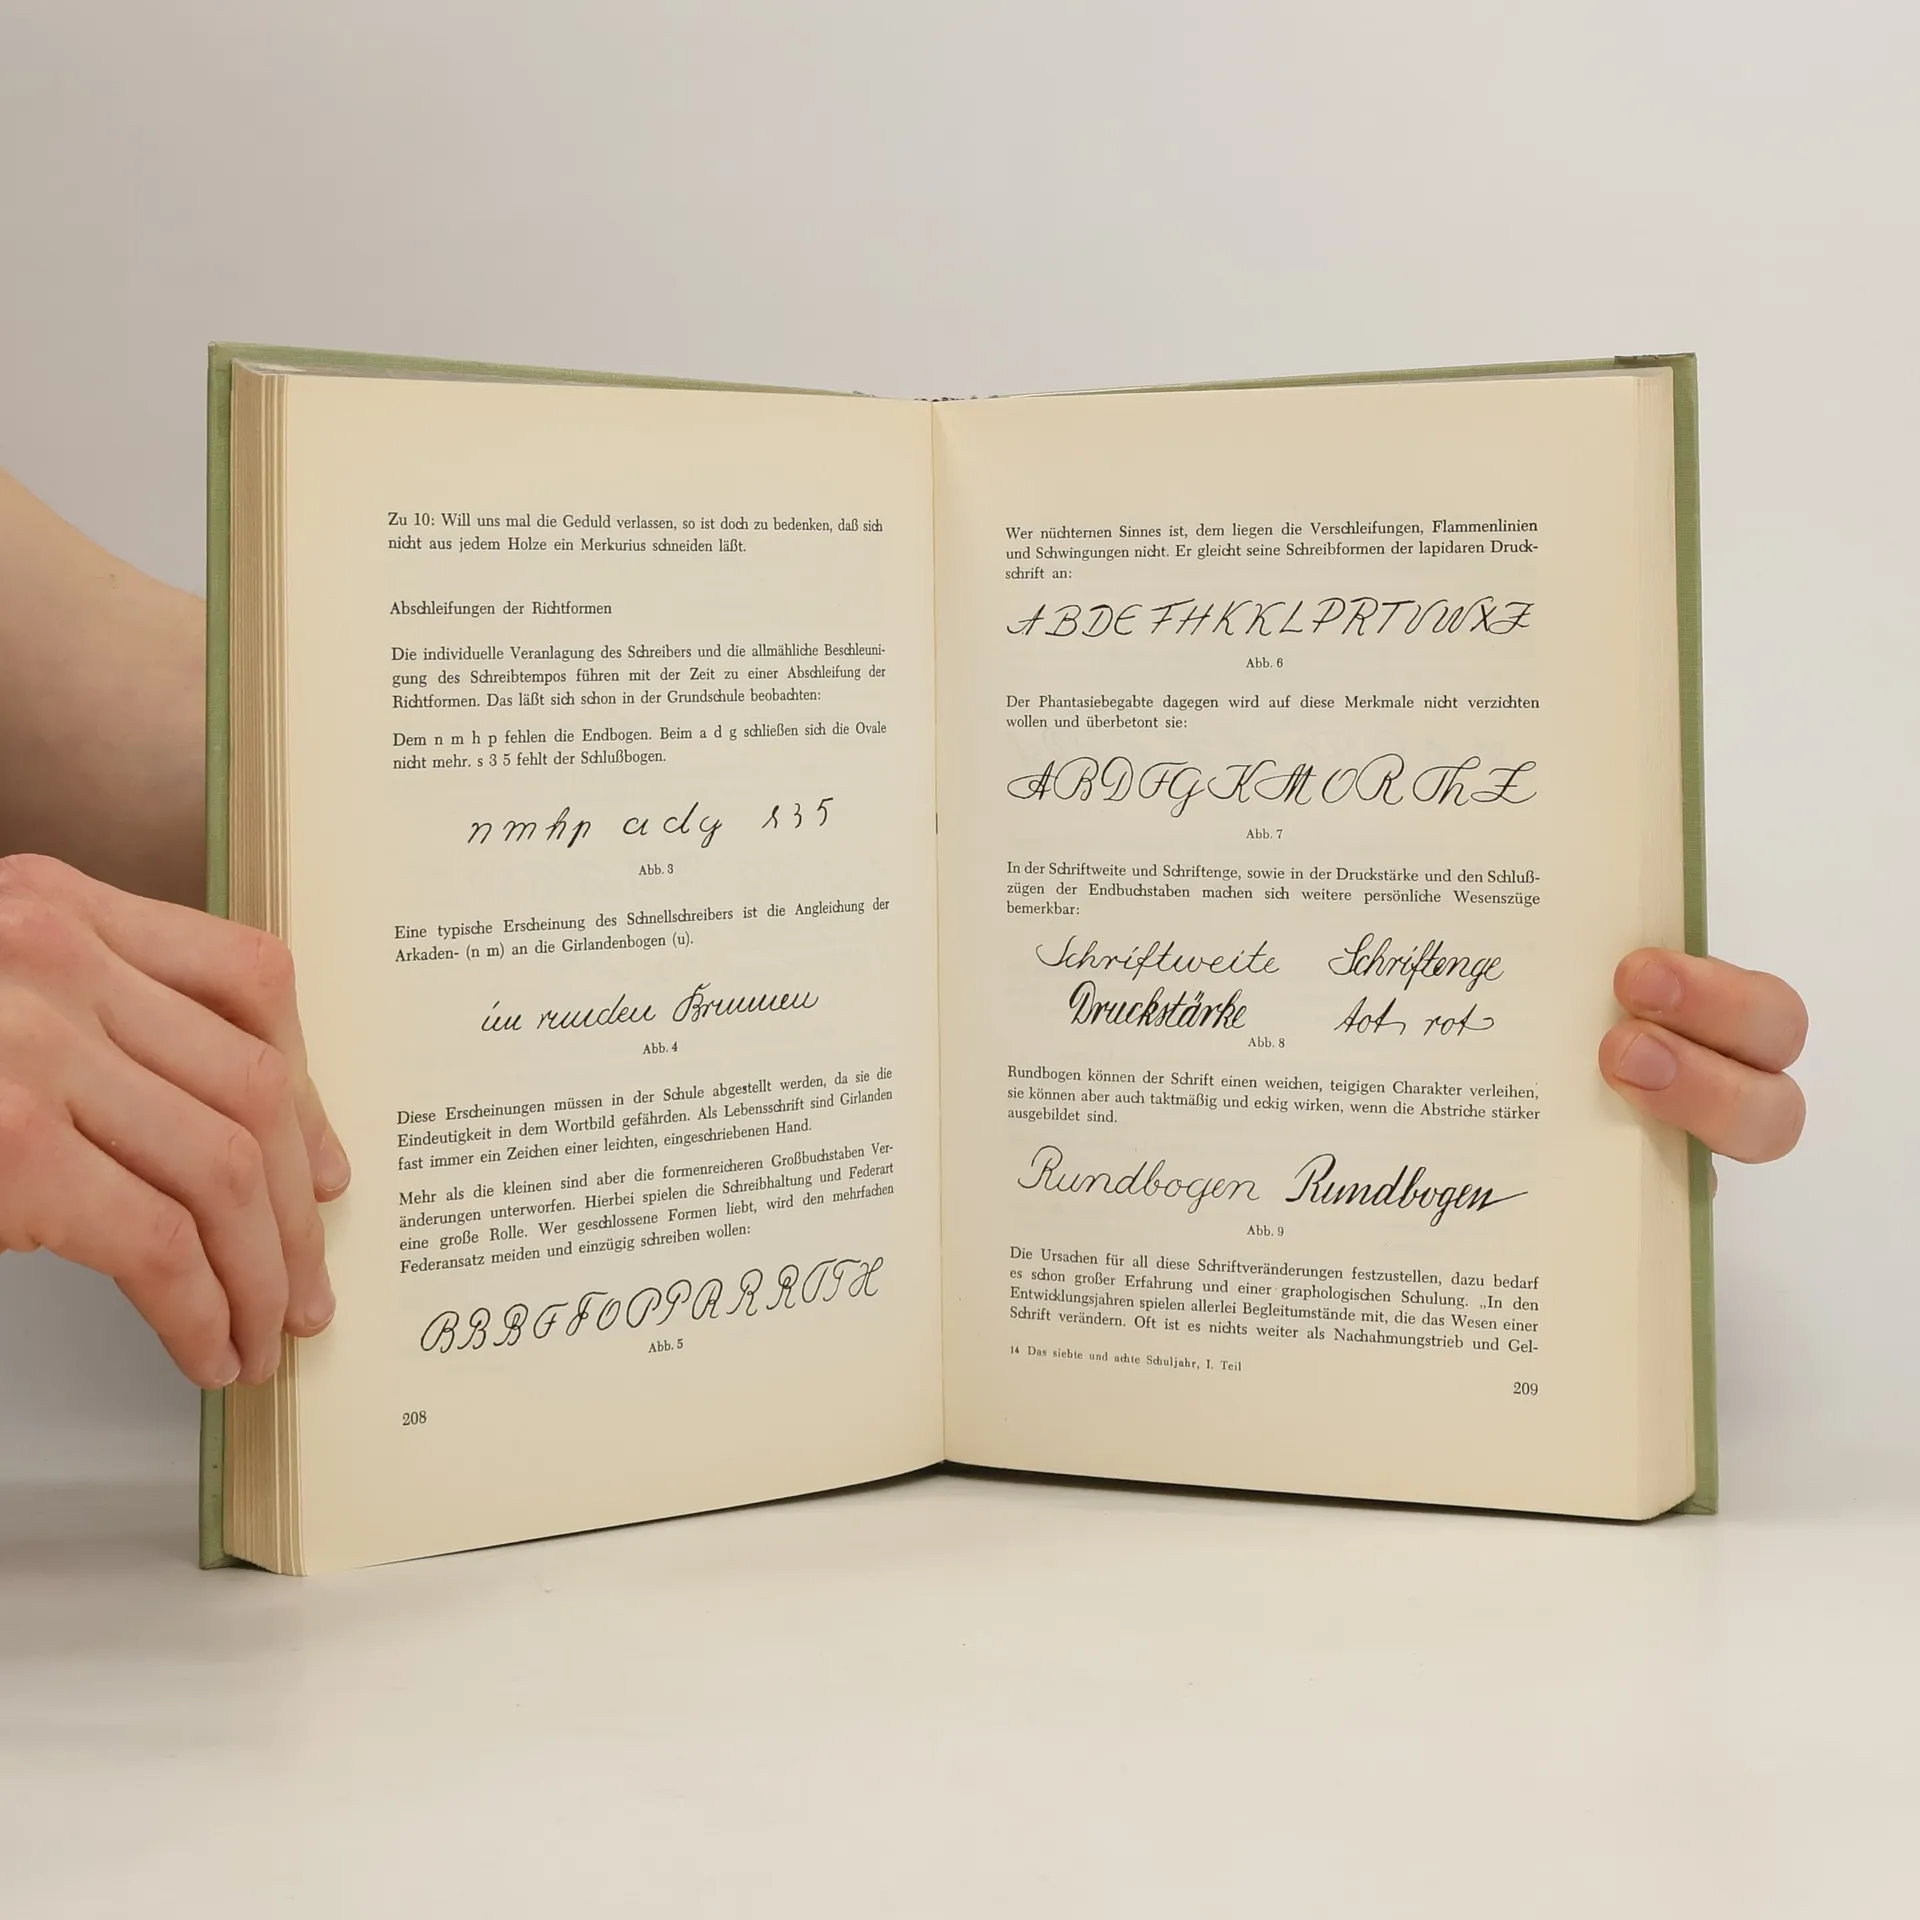 Zu 10: Will uns mal die Geduld verlassen, so ist doch zu bedenken, daß sich
nicht aus jedem Holze ein Merkurius schneiden läßt.
Abschleifungen der Richtformen
Die individuelle Veranlagung des Schreibers und die allmähliche Beschleuni-
gung des Schreibtempos führen mit der Zeit zu einer Abschleifung der
Richtformen. Das läßt sich schon in der Grundschule beobachten:
Dem n m h p fehlen die Endbogen. Beim a d g schließen sich die Ovale
nicht mehr. s 3 5 fehlt der Schlußbogen.
n m h p a d g s 3 5
Abb. 3
Eine typische Erscheinung des Schnellschreibers ist die Angleichung der
Arkaden- (n m) an die Girlandenbogen (u).
im runden Brunnen
Abb. 4
Diese Erscheinungen müssen in der Schule abgestellt werden, da sie die
Eindeutigkeit in dem Wortbild gefährden. Als Lebensschrift sind Girlanden
fast immer ein Zeichen einer leichten, eingeschriebenen Hand.
Mehr als die kleinen sind aber die formenreicheren Großbuchstaben Ver-
änderungen unterworfen. Hierbei spielen die Schreibhaltung und Federart
eine große Rolle. Wer geschlossene Formen liebt, wird den mehrfachen
Federansatz meiden und einzügig schreiben wollen:
B B B F F O P P A R R T T H
Abb. 5
208
Wer nüchternen Sinnes ist, dem liegen die Verschleifungen, Flammenlinien
und Schwingungen nicht. Er gleicht seine Schreibformen der lapidaren Druck-
schrift an:
A B D E F H K K L P R T V W X Z
Abb. 6
Der Phantasiebegabte dagegen wird auf diese Merkmale nicht verzichten
wollen und überbetont sie:
A B D F G K M O R Th Z
Abb. 7
In der Schriftweite und Schriftenge, sowie in der Druckstärke und den Schluß-
zügen der Endbuchstaben machen sich weitere persönliche Wesenszüge
bemerkbar:
Schriftweite Schriftenge
Druckstärke tot rot
Abb. 8
Rundbogen können der Schrift einen weichen, teigigen Charakter verleihen,
sie können aber auch taktmäßig und eckig wirken, wenn die Abstriche stärker
ausgebildet sind.
Rundbogen Rundbogen
Abb. 9
Die Ursachen für all diese Schriftveränderungen festzustellen, dazu bedarf
es schon großer Erfahrung und einer graphologischen Schulung. „In den
Entwicklungsjahren spielen allerlei Begleitumstände mit, die das Wesen einer
Schrift verändern. Oft ist es nichts weiter als Nachahmungstrieb und Gel-
14 Das siebte und achte Schuljahr, I. Teil
209